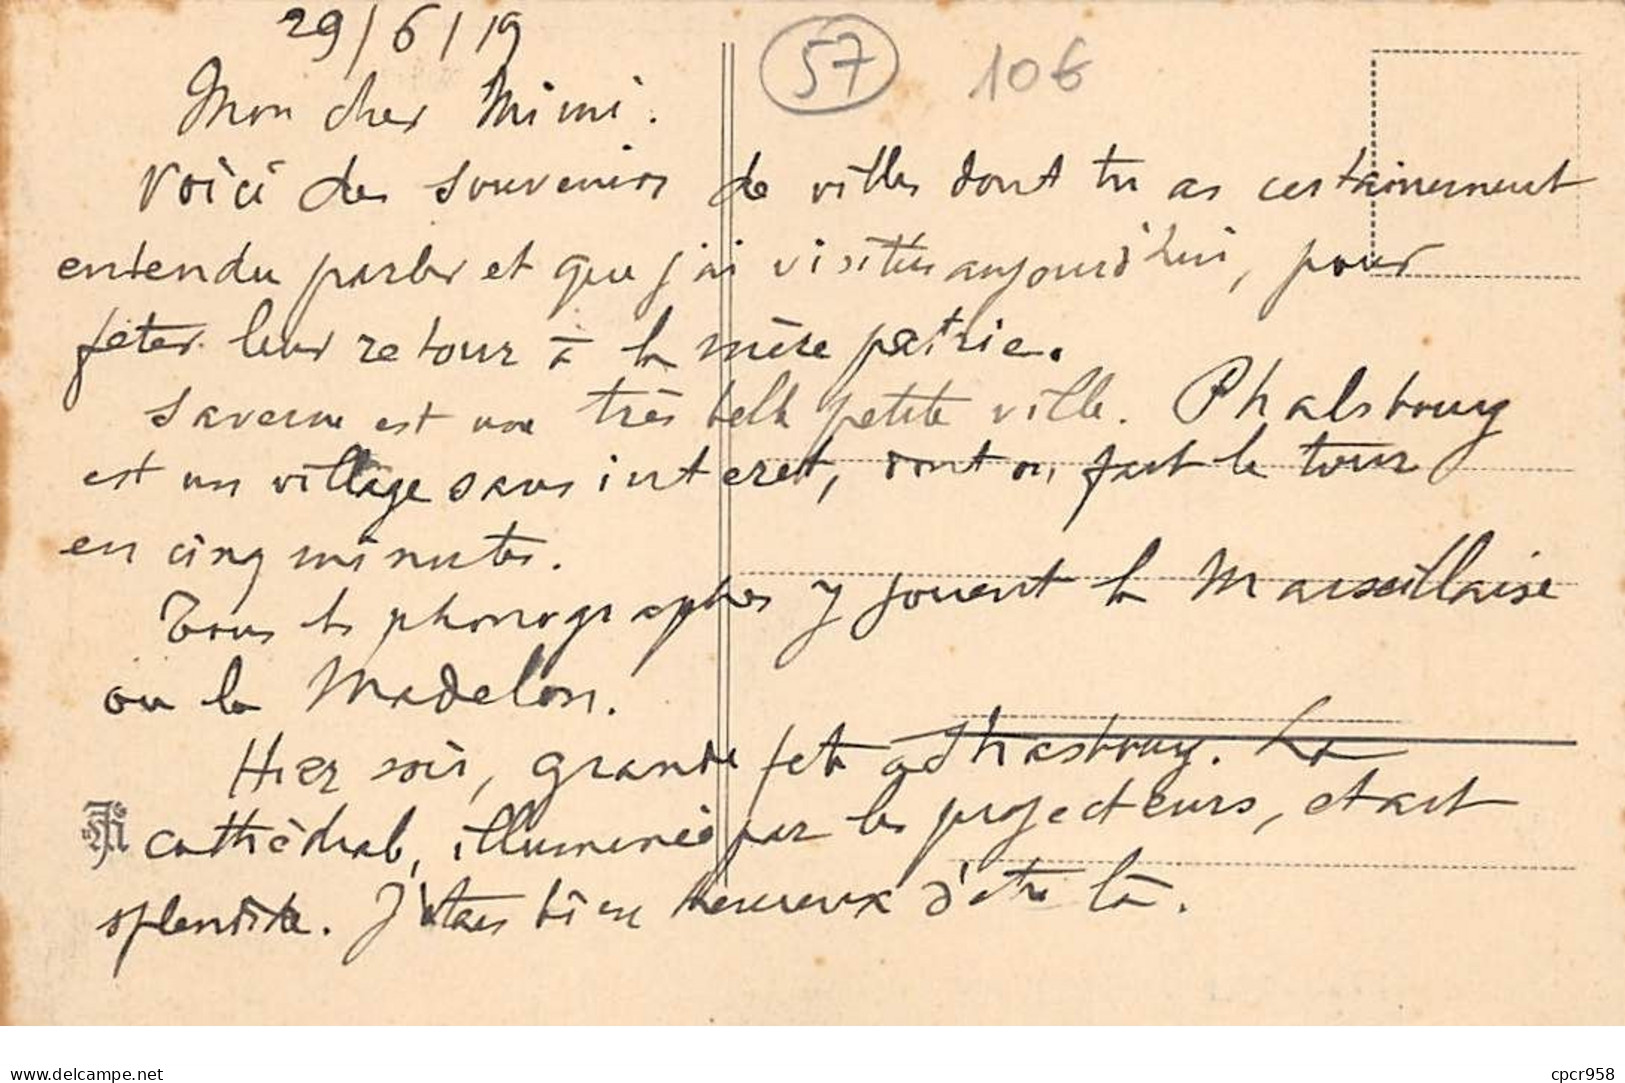 29/6/19
57
10€
Mon cher Mimi.
Voici des souvenirs de villes dont tu as certainement
entendu parler et que j'ai visitées aujourd'hui, pour
fêter leur retour à la mère patrie.
Saverne est une très belle petite ville. Phalsbourg
est un village sans intérêt, dont on fait le tour
en cinq minutes.
Tous les phonographes y jouent la Marseillaise
ou la Madelon.
Hier soir, grande fête à Strasbourg. La
cathédrale, illuminée par les projecteurs, était
splendide. J'étais bien heureux d'être là.
cpcr958
www.delcampe.net